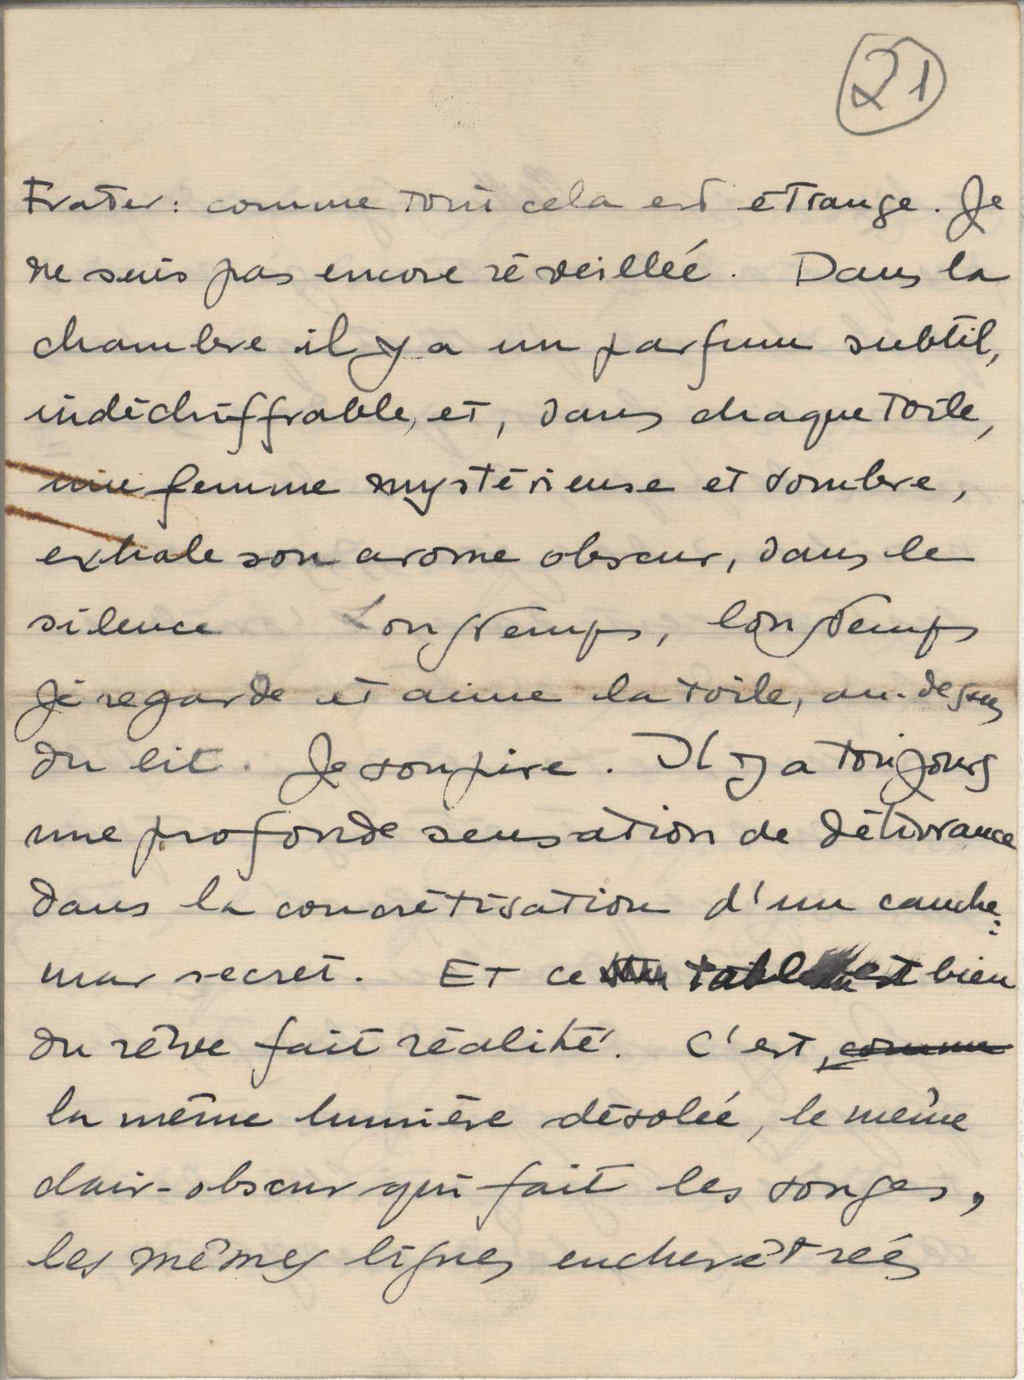 21
Frater : comme tout cela est étrange. Je
ne suis pas encore réveillée. Dans la
chambre il y a un parfum subtil,
indéchiffrable, et, dans chaque toile,
une femme mystérieuse et sombre,
exhale son arome obscur, dans le
silence Longtemps, longtemps
je regarde et aime la toile, au-dessus
du lit. Je soupire. Il y a toujours
une profonde sensation de délivrance
dans la concrétisation d'un cauche-
mar secret. Et ce tableau est bien
du rêve fait réalité. C'est, comme
la même lumière désolée, le même
clair-obscur qui fait les songes,
les mêmes lignes enchevêtrées